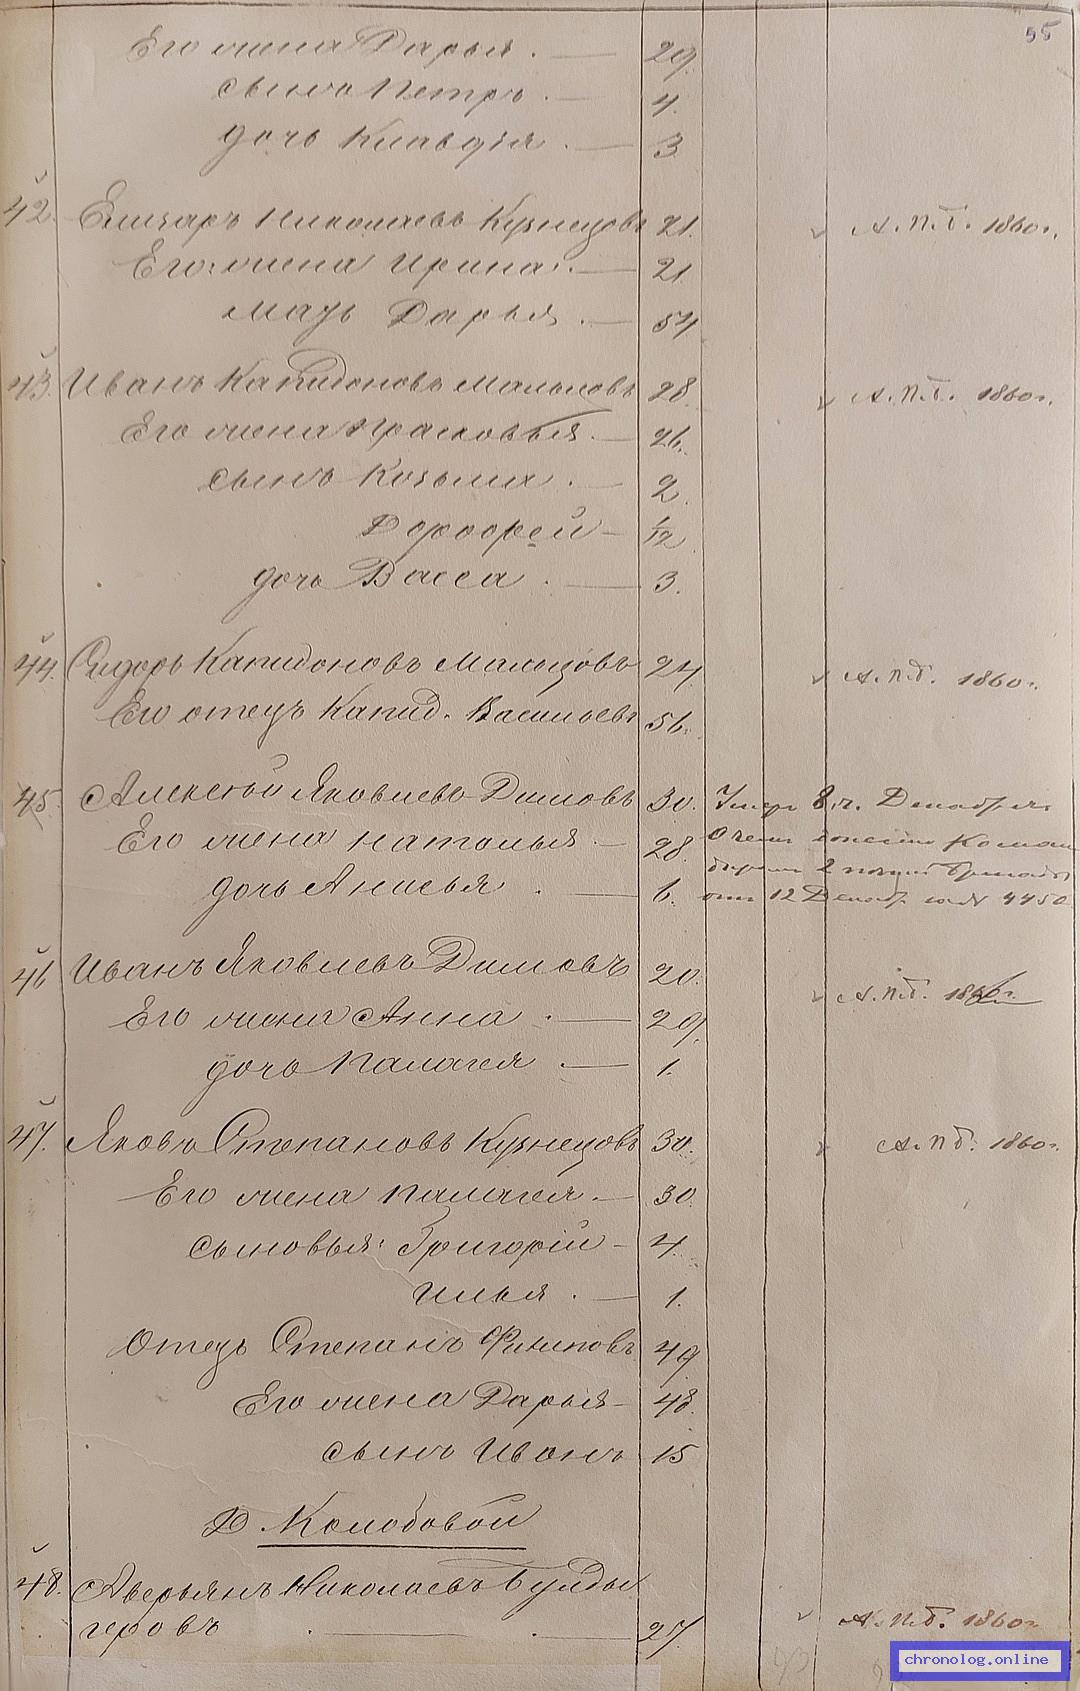 55
Его жена Дарья . — 29.
сынъ Петръ . — 4.
дочь Клавдія . — 3
42. Елизаръ Николаевъ Кузнецовъ 21. А. П. б. 1860 г.
Его жена Ирина . — 21
мать Дарья . — 54.
43. Иванъ Капидоновъ Мальцовъ 28. А. П. б. 1860 г.
Его жена Прасковья . — 26.
сынъ Козьма . — 2.
Дорофей — 1/12
дочь Васса . — 3.
44. Сидоръ Капидоновъ Мальцовъ 24. А. П. б. 1860 г.
Его отецъ Капид. Васильевъ 56.
45. Алексѣй Яковлевъ Димовъ 30. Умеръ 8 ч. Декабря
Его жена Наталья — 28. О чемъ
дочь Анисья . — 6. 12 Декабр. 4450
46 Иванъ Яковлевъ Димовъ 20. А. П. б. 1860 г.
Его жена Анна . — 29.
дочь Палагея . — 1.
47. Яковъ Степановъ Кузнецовъ 30. А. П. б. 1860 г.
Его жена Палагея . — 30.
сыновья: Григорій — 4.
Илья . — 1.
Отецъ Степанъ Филиповъ 49
Его жена Дарья — 48.
сынъ Иванъ 15
Д. Колобовой
48. Аверьянъ Николаевъ Булды
геровъ . — . — 27. А. П. б. 1860 г.
chronolog.online